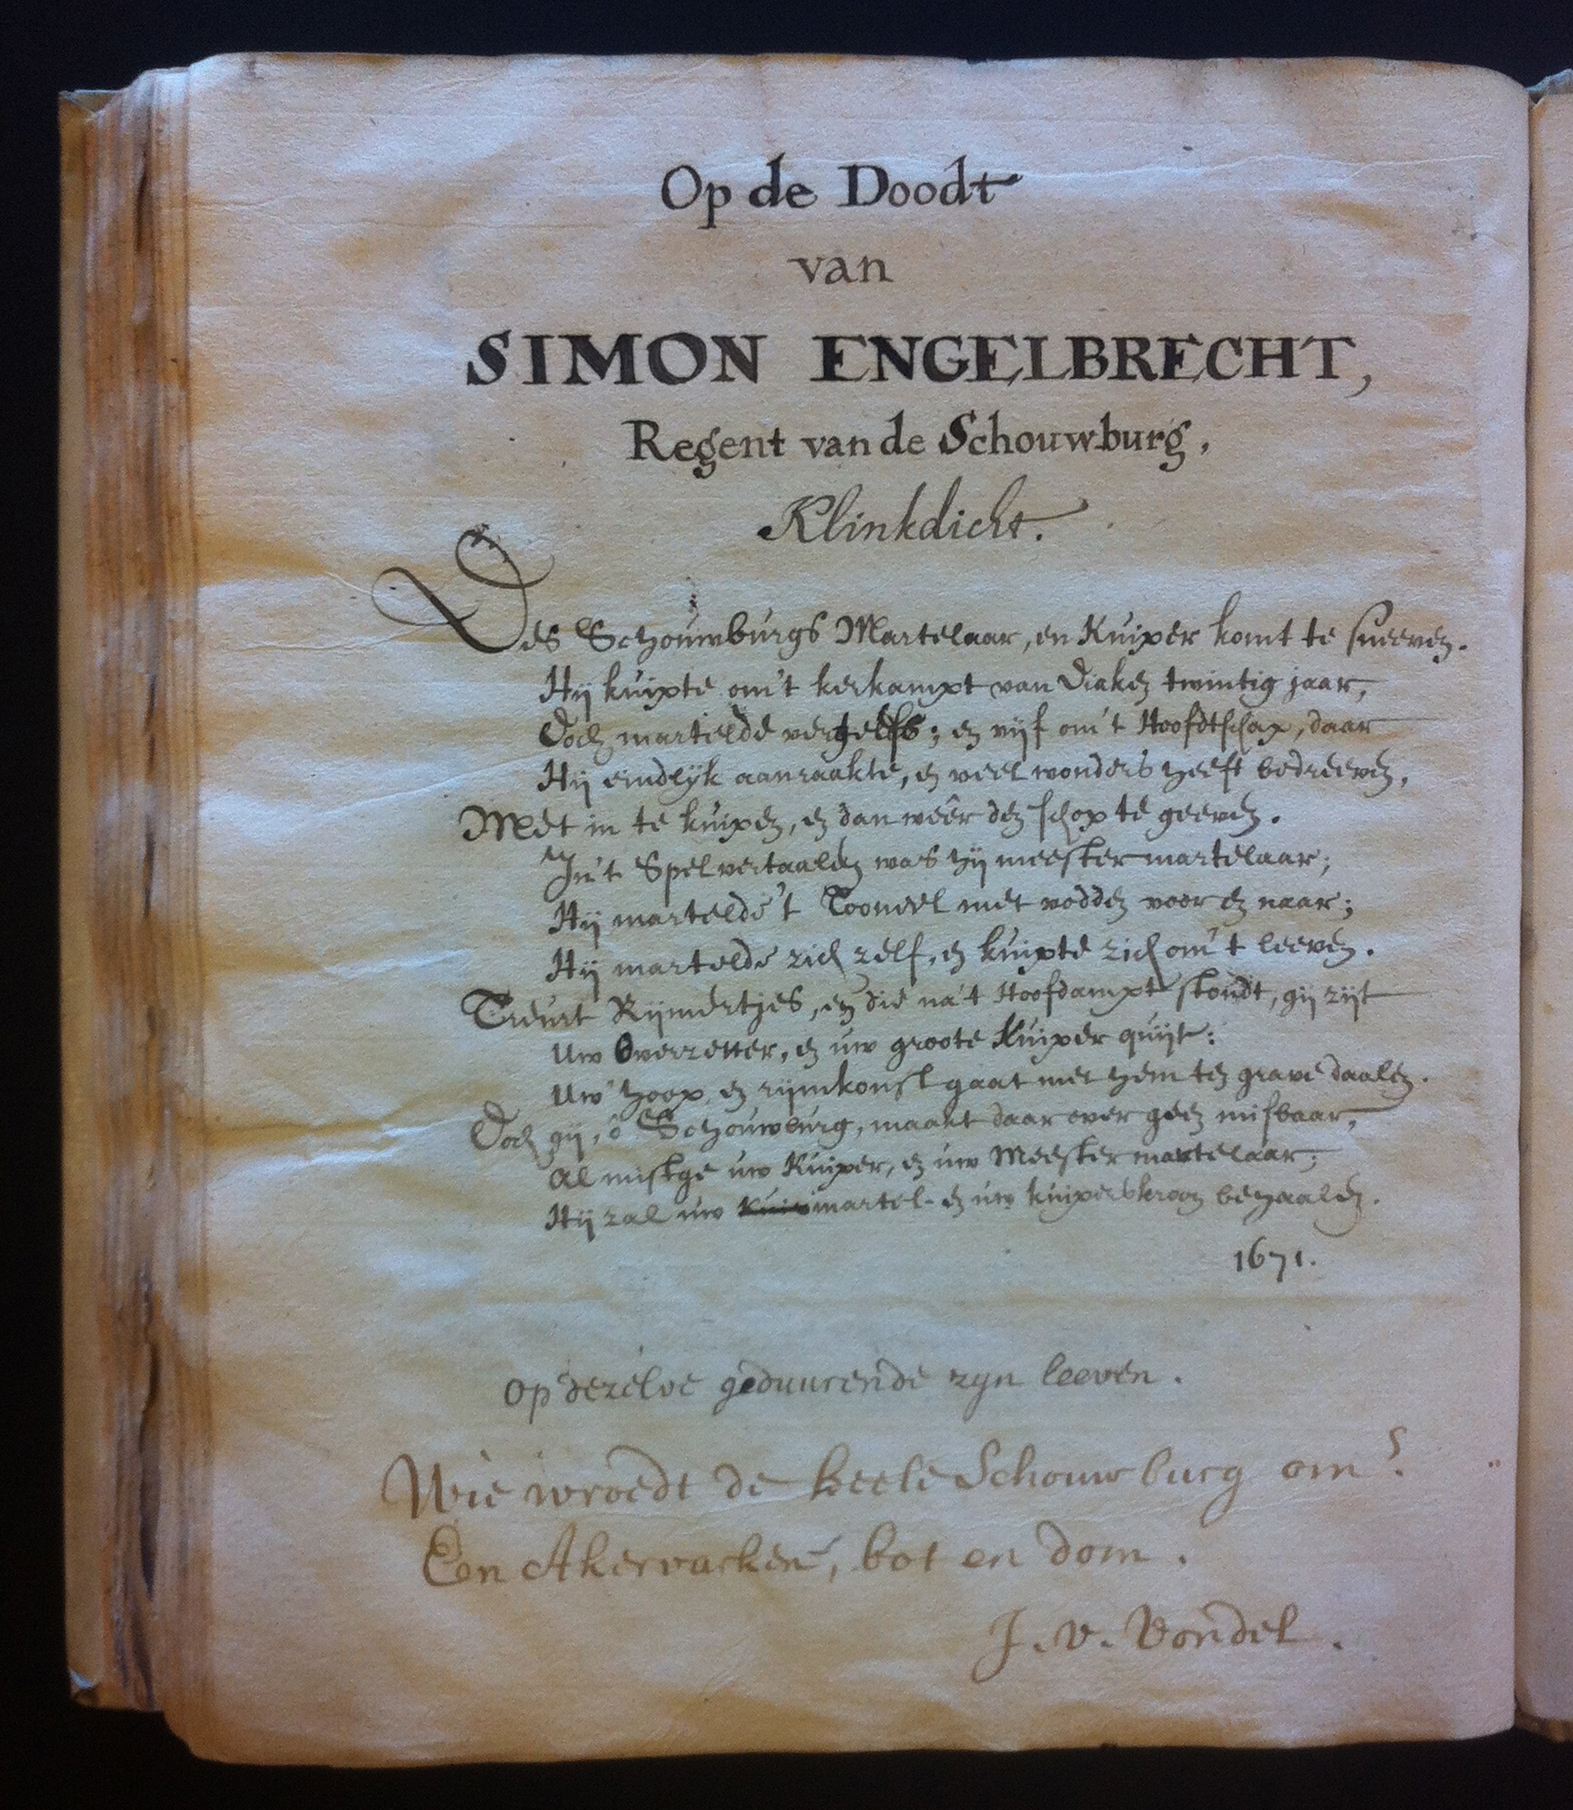 Op de Doodt
van
SIMON ENGELBRECHT,
Regent van de Schouwburg,
Klinkdicht.
Des Schouwburgs Martelaar, en Kuiper komt te sneeven.
Hij kuipte om't kerkampt van Diaken twintig jaar,
Doch martelde vergeefs; en vijf om't Hoofdtschap, daar
Hij eindlijk aanraakte, en veel wonders heeft bedreeven,
Met in te kuipen, en dan weêr den schop te geeven.
In't Spelvertaalen was hij meester martelaar;
Hij martelde 't Tooneel met vodden voor en naar;
Hij martelde zich zelf, en kuipte zich om't leeven.
Treurt Rijmertjes, en die na't Hoofdampt stondt, gij zijt
Uw Overzetter, en uw groote Kuiper quijt:
Uw hoop en rijmkonst gaat met hem ten grave daalen.
Doch gij, ô Schouwburg, maakt daar over geen misbaar,
Al mistge uw Kuiper, en uw Meester martelaar;
Hij zal uw martel- en uw kuiperskroon behaalen.
1671.
Op dezelve geduurende zyn leeven.
Wie wroedt de heele Schouwburg om?
Een Akervarken, bot en dom.
J. v. Vondel.